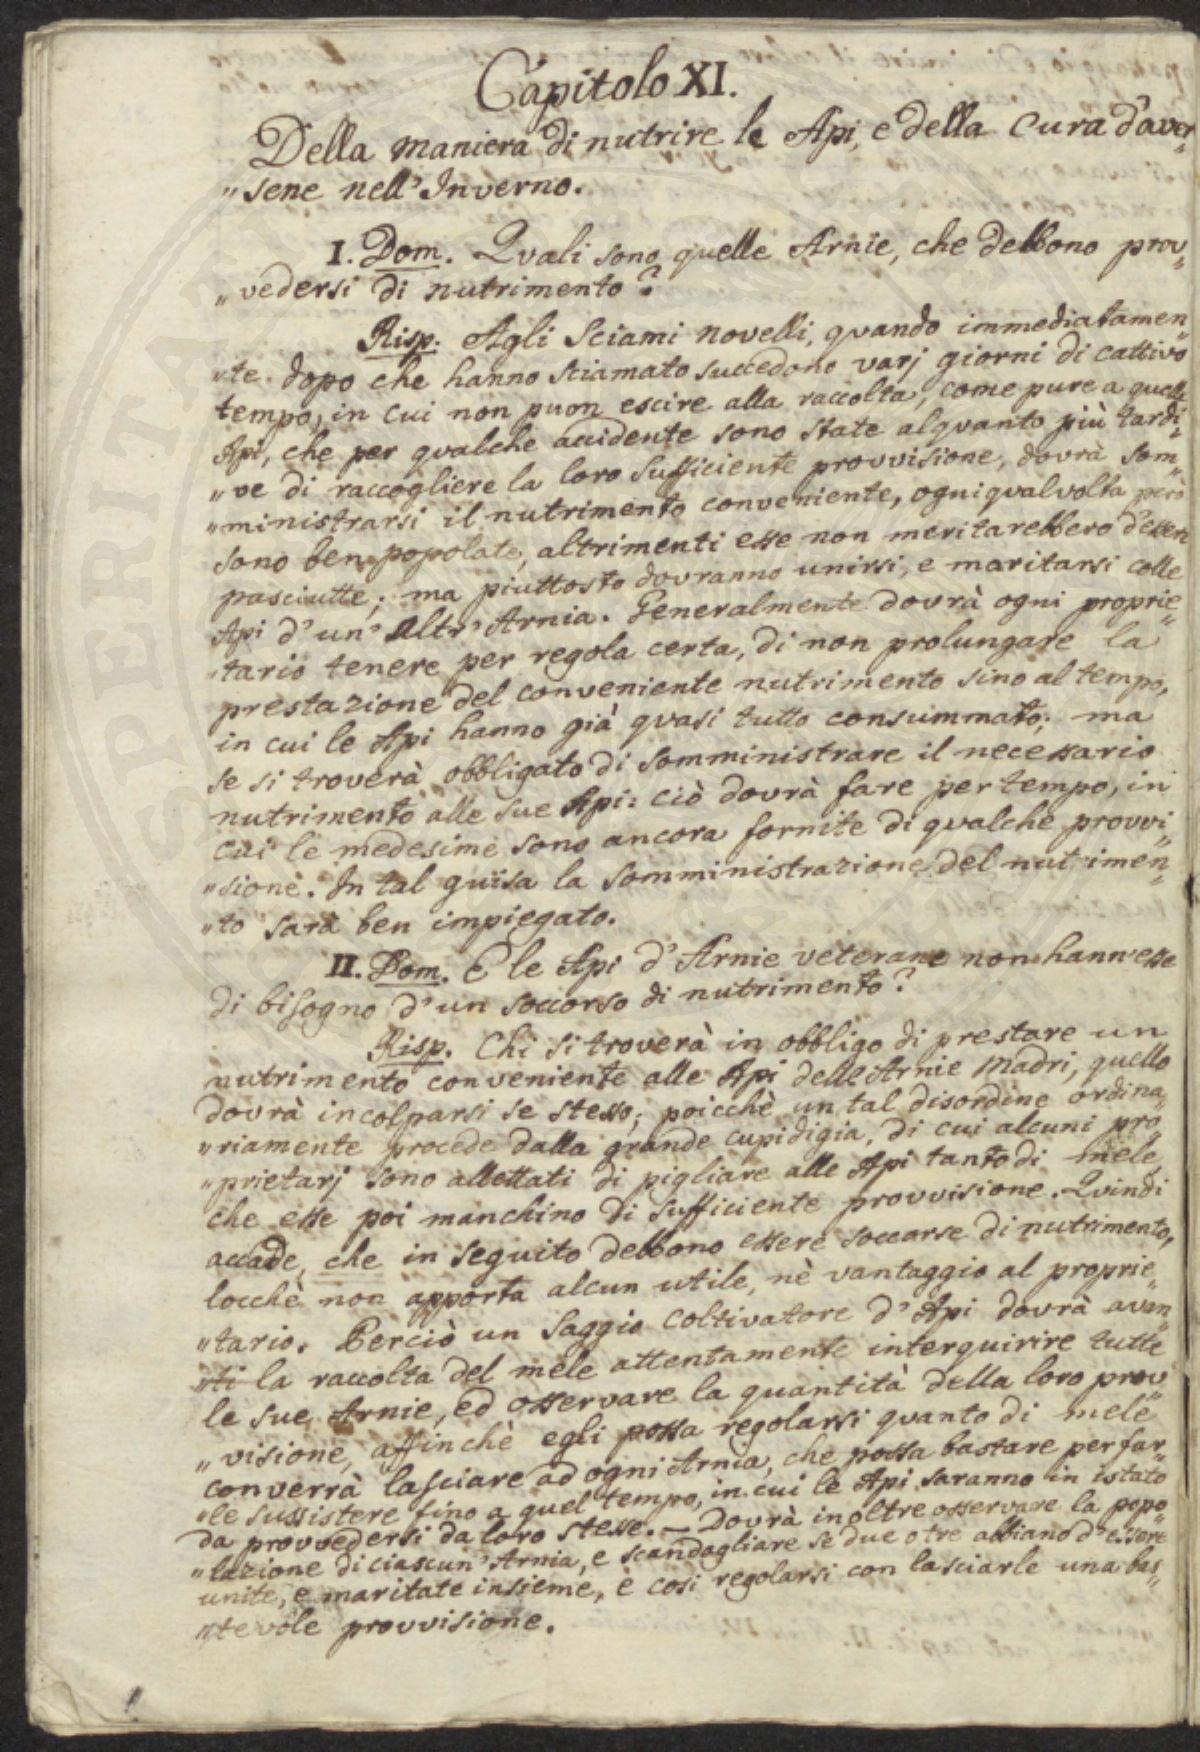 Capitolo XI.
Della maniera di nutrire le Api, e della Cura d'aver„
„sene nell'Inverno.
I. Dom. Quali sono quelle Arnie, che debbono prov„
„vedersi di nutrimento?
Risp. Agli Sciami novelli, quando immediatamen„
„te dopo che hanno sciamato succedono varj giorni di cattivo
tempo, in cui non puon escire alla raccolta, come pure a quelle
Api, che per qualche accidente sono state alquanto più tardi„
„ve di raccogliere la loro sufficiente provvisione, dovrà som„
„ministrarsi il nutrimento conveniente, ogniqualvolta però
sono ben popolate, altrimenti esse non meritarebbero d'essen
pasciutte; ma piuttosto dovranno unirsi, e maritarsi colle
Api d'un'Altr'Arnia. Generalmente dovrà ogni proprie„
„tario tenere per regola certa, di non prolungare la
prestazione del conveniente nutrimento sino al tempo,
in cui le Api hanno già quasi tutto consummato; ma
se si troverà obbligato di somministrare il necessario
nutrimento alle sue Api: ciò dovrà fare per tempo, in
cui le medesime sono ancora fornite di qualche provvi„
„sione. In tal guisa la somministrazione del nutrimen„
„to sarà ben impiegato.
II. Dom. E le Api d'Arnie veterane non hann'esse
di bisogno d'un soccorso di nutrimento?
Risp. Chi si troverà in obbligo di prestare un
nutrimento conveniente alle Api delle Arnie Madri, quello
dovrà incolparsi se stesso; poicchè un tal disordine ordina„
„riamente procede dalla grande cupidigia, di cui alcuni pro„
„prietarj sono allettati di pigliare alle Api tanto di mele,
che esse poi manchino di sufficiente provvisione. Quindi
accade, che in seguito debbono essere soccorse di nutrimento,
locchè non apporta alcun utile, nè vantaggio al proprie„
„tario. Perciò un saggio coltivatore d'Api dovrà avan„
„ti la raccolta del mele attentamente interquirire tutte
le sue Arnie, ed osservare la quantità della loro prov„
„visione, affinchè egli possa regolarsi quanto di mele
converrà lasciare ad ogni Arnia, che possa bastare per far„
„le sussistere fino a quel tempo, in cui le Api saranno in istato
da provvedersi da loro stesse. — Dovrà inoltre osservare la popo„
„lazione di ciascun'Arnia, e scandagliare se due o tre abbiano d'essere
unite, e maritate insieme, e così regolarsi con lasciarle una bas„
„tevole provvisione.
SPERITATI